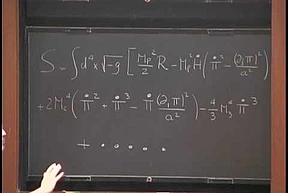 S = ∫d⁴x √-g [ M_P²/2 R - M_P² Ḣ ( π̇² - (∂ᵢπ)²/a² )
+ 2M₂⁴ ( π̇² + π̇³ - π̇ (∂ᵢπ)²/a² ) - 4/3 M₃⁴ π̇³
+ . . . . .